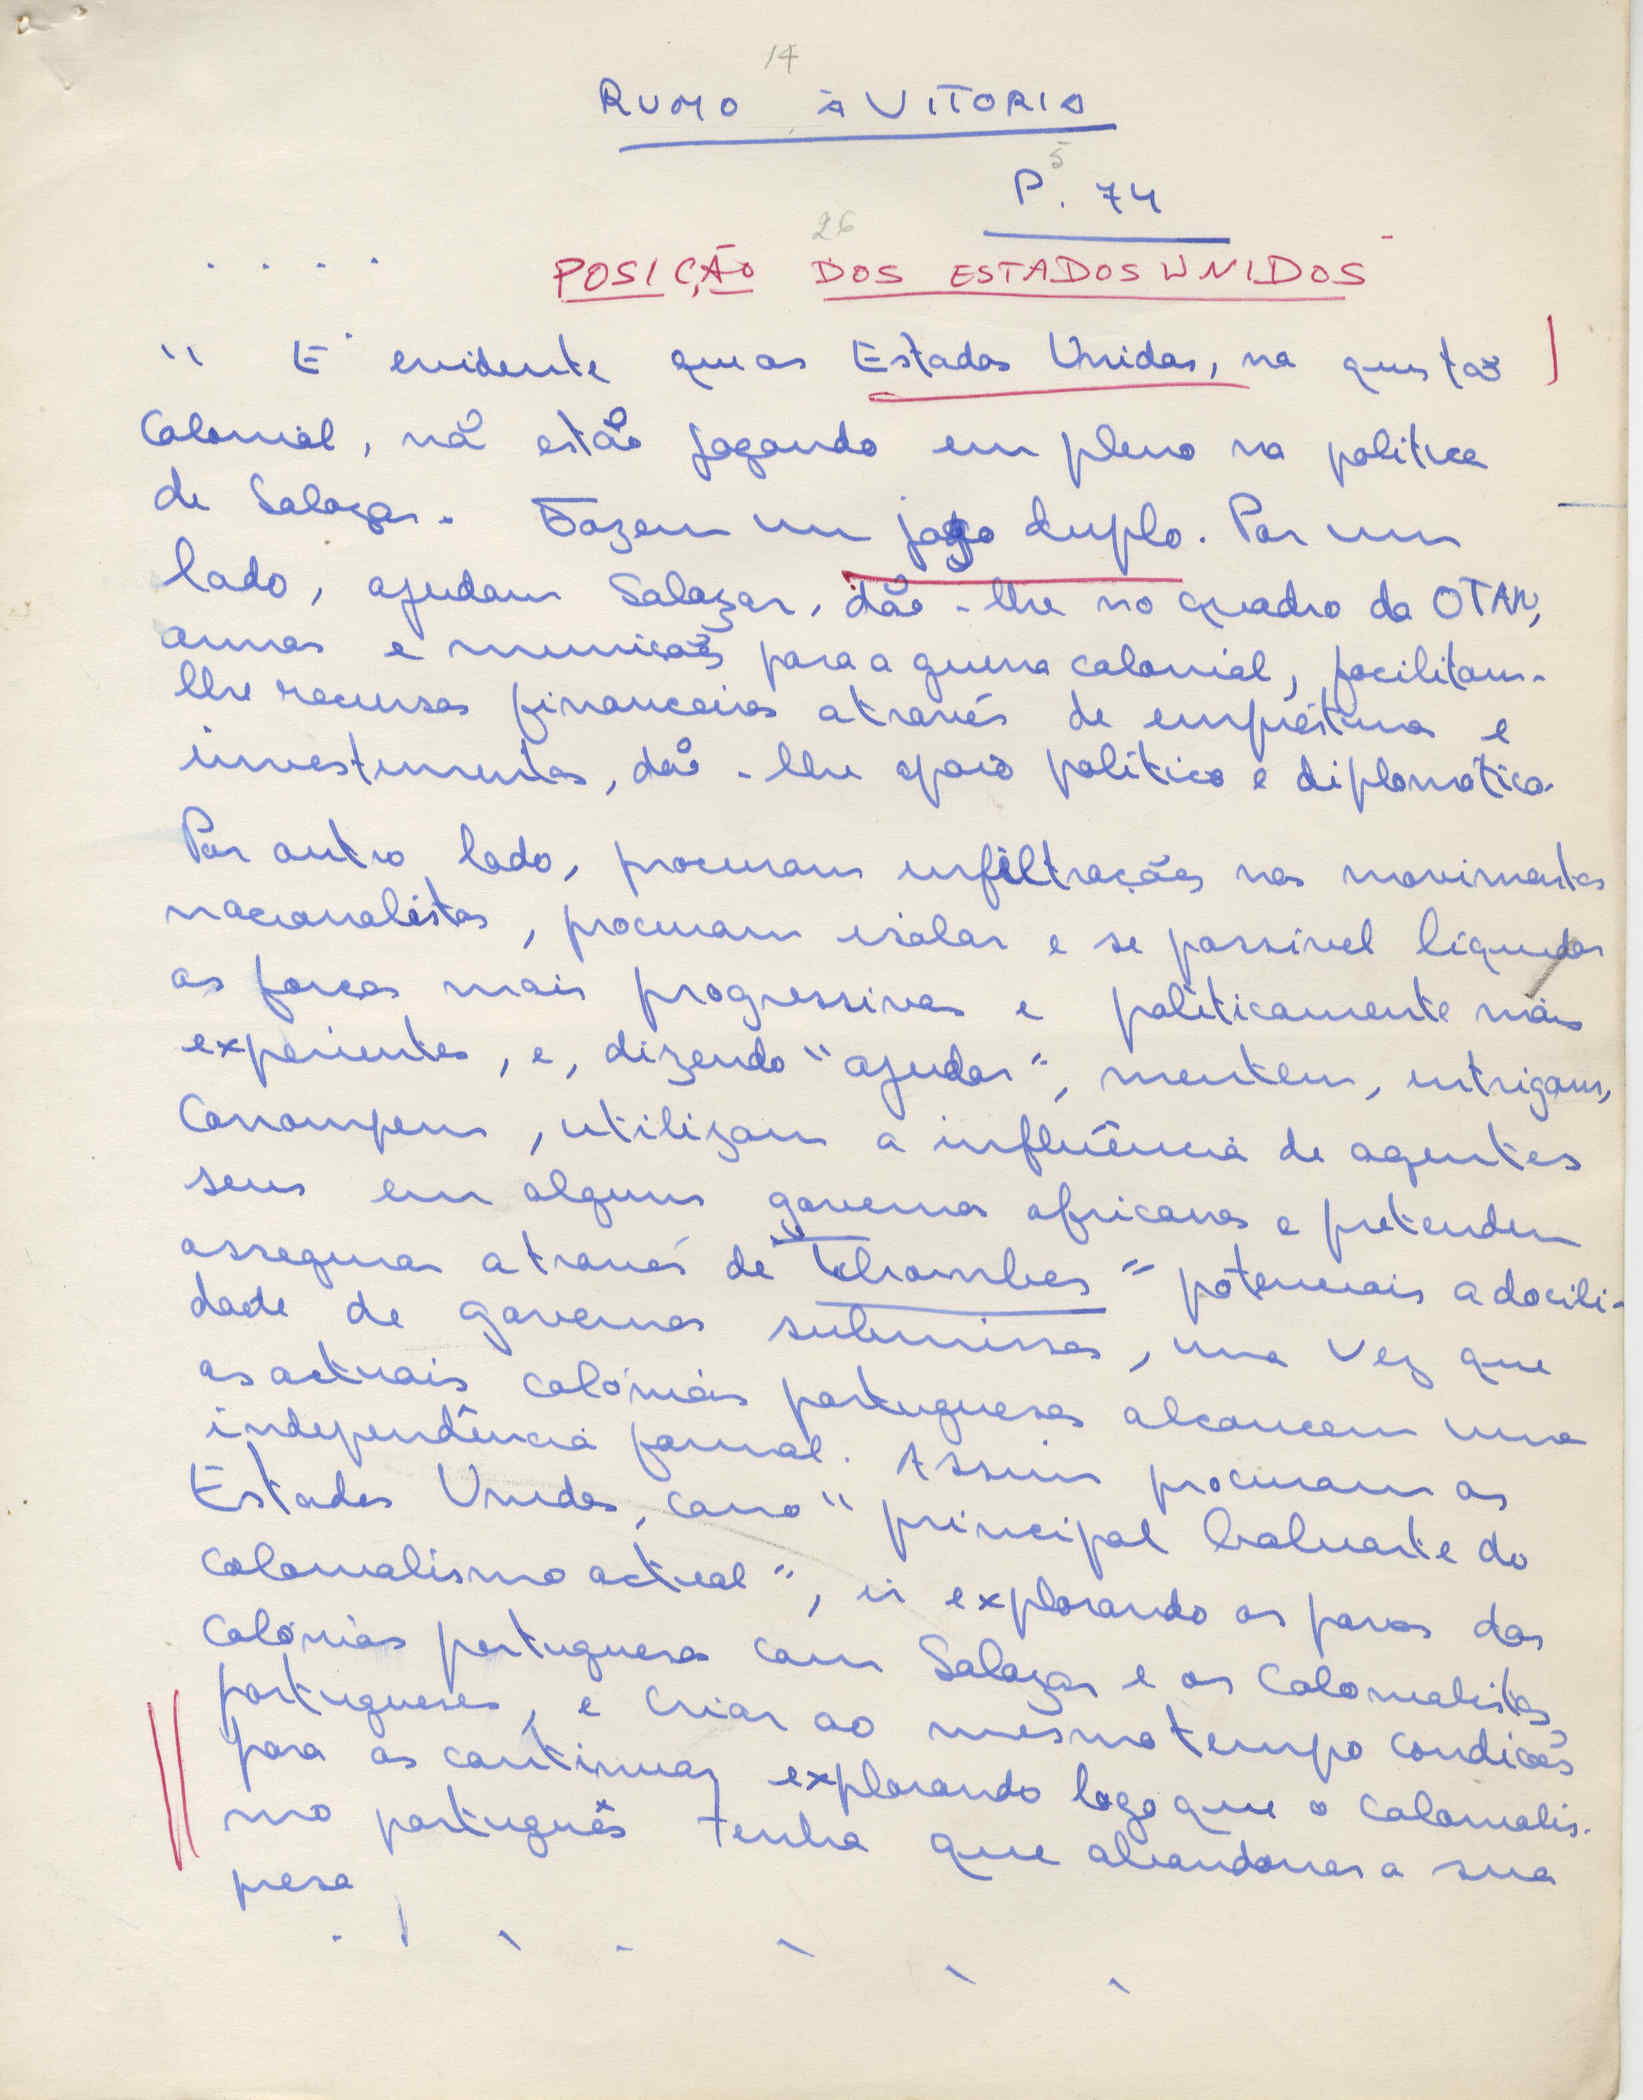 14
RUMO À VITORIA
5
P. 74
26
. . . .
POSIÇÃO DOS ESTADOS UNIDOS
" É evidente que os Estados Unidos, na questão
Colonial, não estão jogando em pleno na politica
de Salazar. Fazem um jogo duplo. Por um
lado, ajudam Salazar, dão-lhe no quadro da OTAN,
armas e munições para a guerra colonial, facilitam-
lhe recursos financeiros através de empréstimos e
investimentos, dão-lhe apoio político e diplomático.
Por outro lado, procuram infiltrações nos movimentos
nacionalistas, procuram isolar e se possivel liquidar
as forças mais progressivas e politicamente mais
experientes, e, dizendo "ajudar", mentem, intrigam,
Corrompem, utilizam a influência de agentes
seus em alguns governos africanos e pretendem
assegurar através de "tchombes" potenciais a docili-
dade de governos submissos, uma vez que
as actuais colónias portuguesas alcancem uma
independência formal. Assim procuram os
Estados Unidos, como "principal baluarte do
colonialismo actual", ir explorando os povos das
Colónias portuguesas com Salazar e os Colonialistas
portugueses, e criar ao mesmo tempo condições
para os continuar explorando logo que o colonialis-
mo português tenha que abandonar a sua
presa